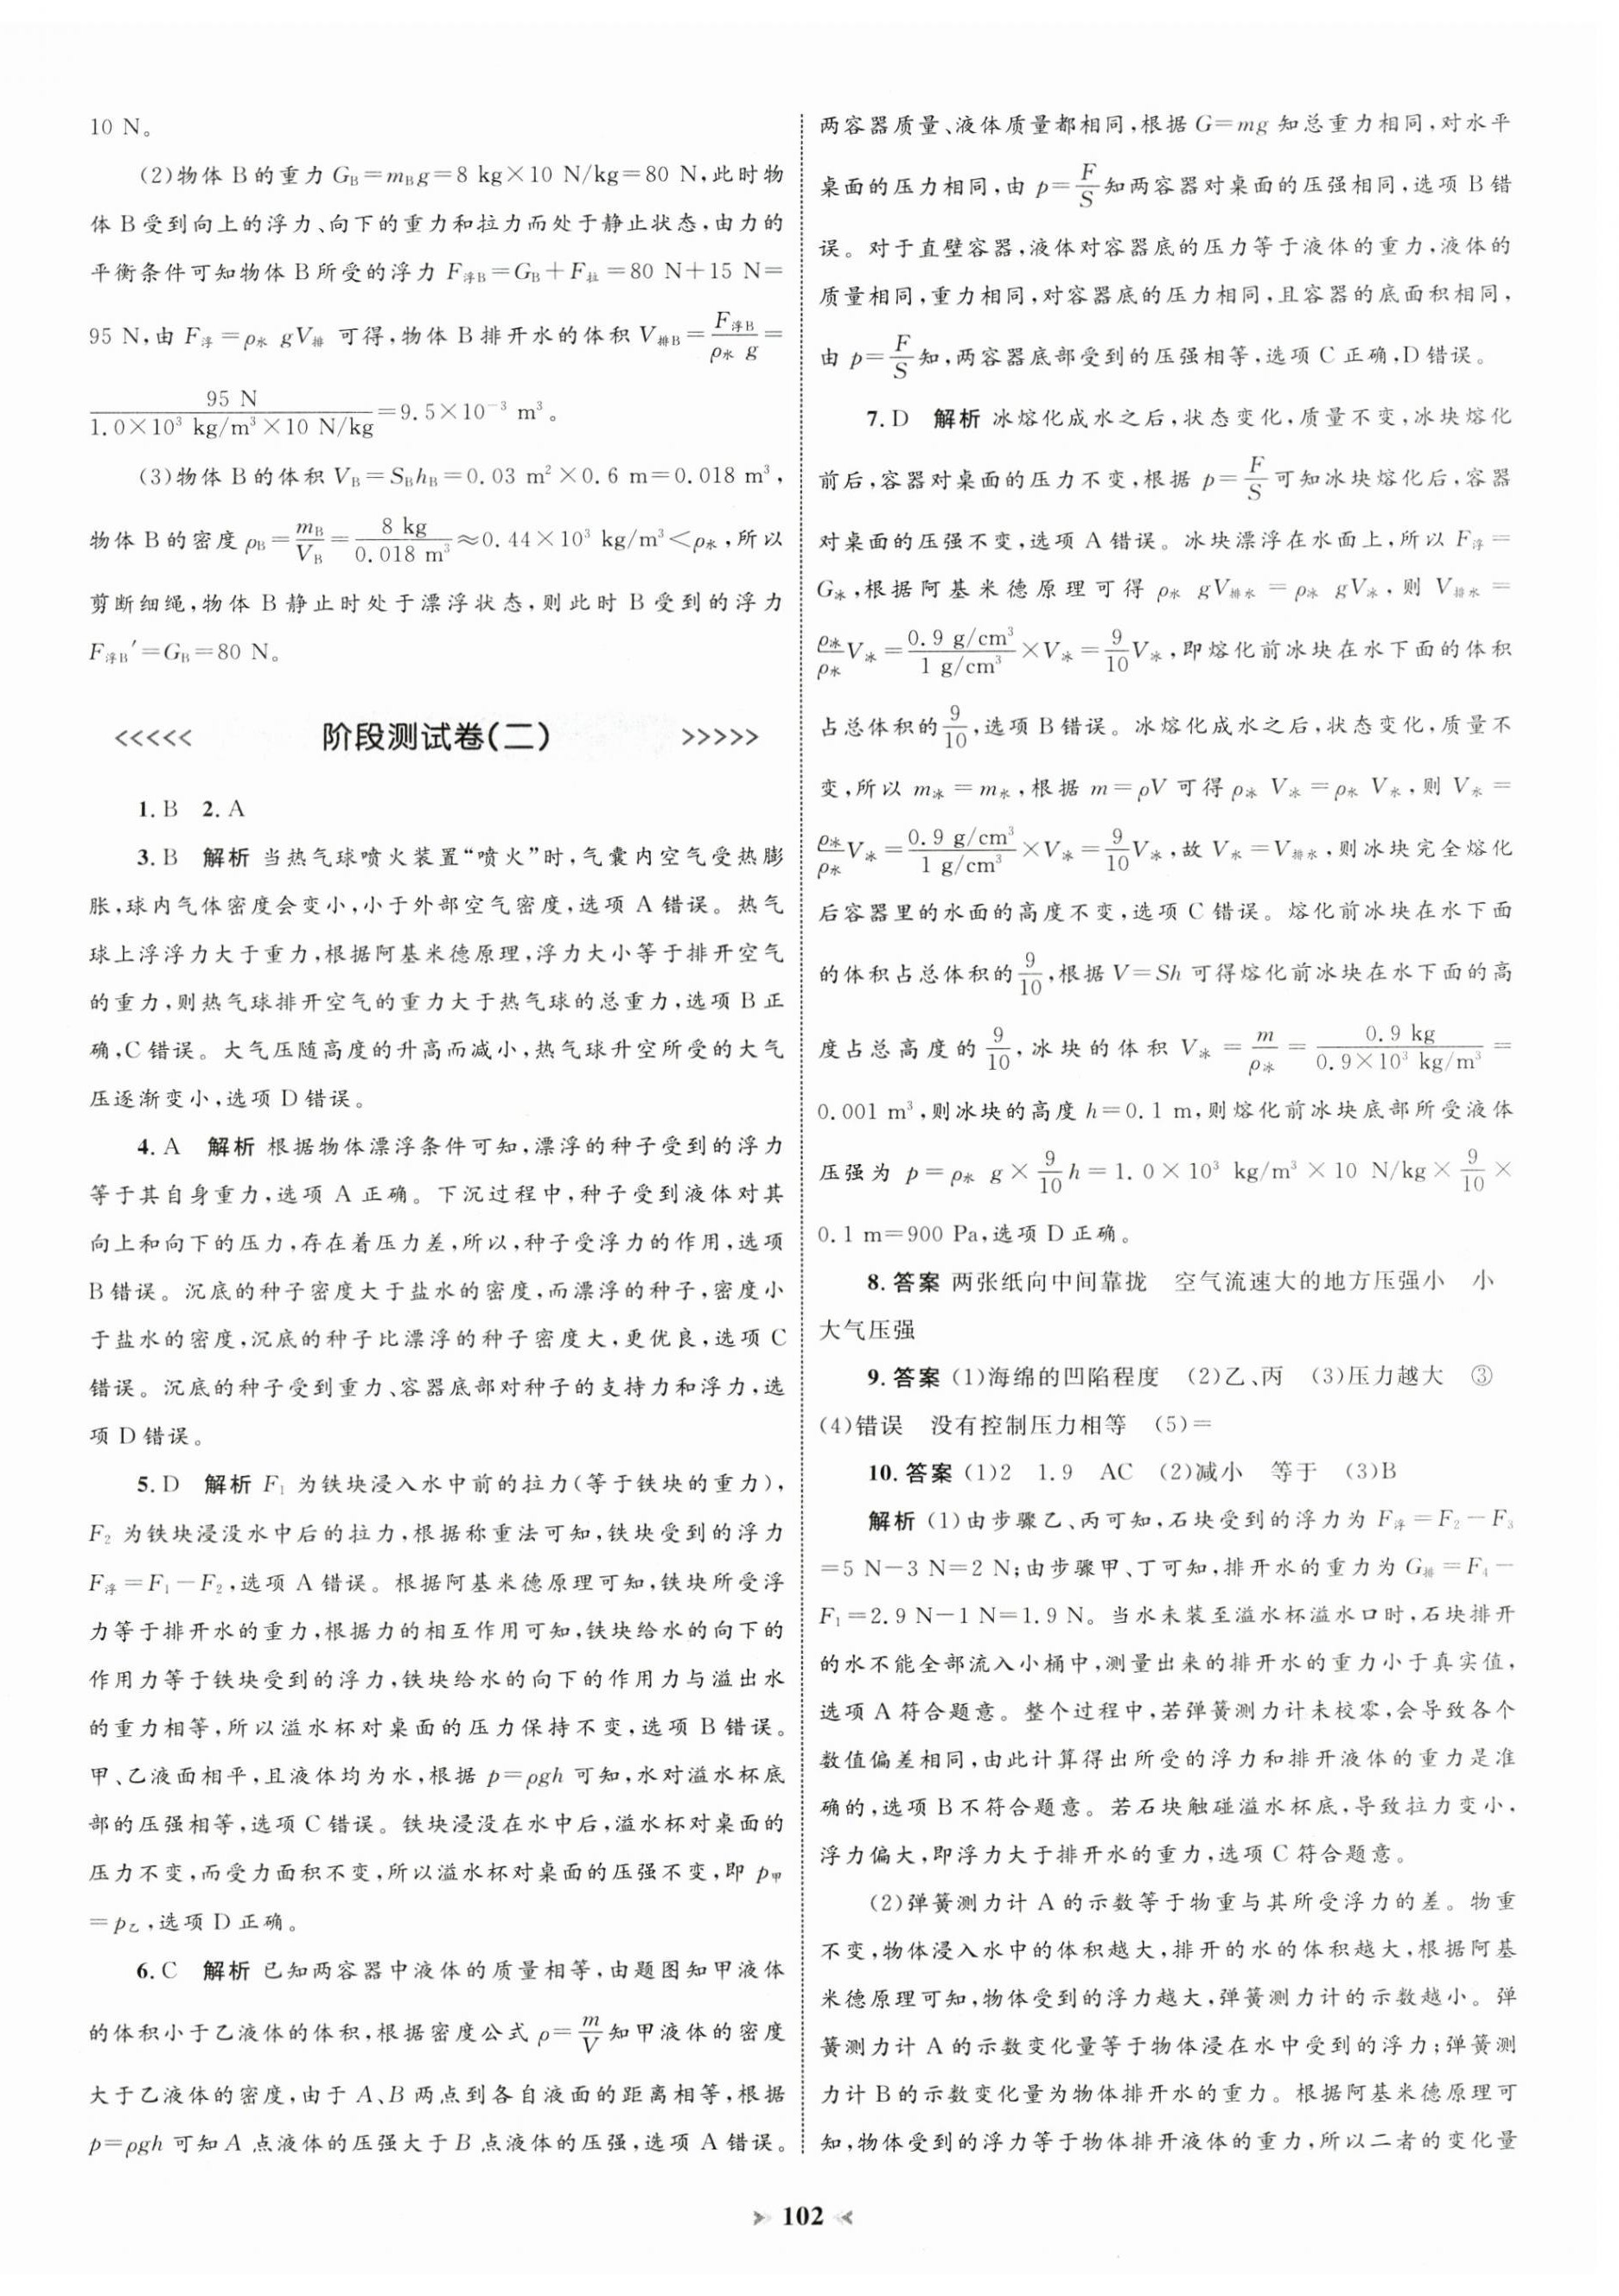 10 N。
(2)物体 B 的重力 G_B=m_Bg=8 kg×10 N/kg=80 N,此时物
体 B 受到向上的浮力、向下的重力和拉力而处于静止状态,由力的
平衡条件可知物体 B 所受的浮力 F_浮B=G_B+F_拉=80 N+15 N=
95 N,由 F_浮=ρ_水 gV_排 可得,物体 B 排开水的体积 V_排B=F_浮B/(ρ_水 g)=
95 N/(1.0×10³ kg/m³×10 N/kg)=9.5×10⁻³ m³。
(3)物体 B 的体积 V_B=S_Bh_B=0.03 m²×0.6 m=0.018 m³,
物体 B 的密度 ρ_B=m_B/V_B=8 kg/0.018 m³≈0.44×10³ kg/m³<ρ_水,所以
剪断细绳,物体 B 静止时处于漂浮状态,则此时 B 受到的浮力
F_浮B′=G_B=80 N。
<<<<< 阶段测试卷(二) >>>>>
1. B 2. A
3. B 解析 当热气球喷火装置“喷火”时,气囊内空气受热膨
胀,球内气体密度会变小,小于外部空气密度,选项 A 错误。热气
球上浮浮力大于重力,根据阿基米德原理,浮力大小等于排开空气
的重力,则热气球排开空气的重力大于热气球的总重力,选项 B 正
确,C 错误。大气压随高度的升高而减小,热气球升空所受的大气
压逐渐变小,选项 D 错误。
4. A 解析 根据物体漂浮条件可知,漂浮的种子受到的浮力
等于其自身重力,选项 A 正确。下沉过程中,种子受到液体对其
向上和向下的压力,存在着压力差,所以,种子受浮力的作用,选项
B 错误。沉底的种子密度大于盐水的密度,而漂浮的种子,密度小
于盐水的密度,沉底的种子比漂浮的种子密度大,更优良,选项 C
错误。沉底的种子受到重力、容器底部对种子的支持力和浮力,选
项 D 错误。
5. D 解析 F₁ 为铁块浸入水中前的拉力(等于铁块的重力),
F₂ 为铁块浸没水中后的拉力,根据称重法可知,铁块受到的浮力
F_浮=F₁-F₂,选项 A 错误。根据阿基米德原理可知,铁块所受浮
力等于排开水的重力,根据力的相互作用可知,铁块给水的向下的
作用力等于铁块受到的浮力,铁块给水的向下的作用力与溢出水
的重力相等,所以溢水杯对桌面的压力保持不变,选项 B 错误。
甲、乙液面相平,且液体均为水,根据 p=ρgh 可知,水对溢水杯底
部的压强相等,选项 C 错误。铁块浸没在水中后,溢水杯对桌面的
压力不变,而受力面积不变,所以溢水杯对桌面的压强不变,即 p_甲
=p_乙,选项 D 正确。
6. C 解析 已知两容器中液体的质量相等,由题图知甲液体
的体积小于乙液体的体积,根据密度公式 ρ=m/V 知甲液体的密度
大于乙液体的密度,由于 A、B 两点到各自液面的距离相等,根据
p=ρgh 可知 A 点液体的压强大于 B 点液体的压强,选项 A 错误。
两容器质量、液体质量都相同,根据 G=mg 知总重力相同,对水平
桌面的压力相同,由 p=F/S 知两容器对桌面的压强相同,选项 B 错
误。对于直壁容器,液体对容器底的压力等于液体的重力,液体的
质量相同,重力相同,对容器底的压力相同,且容器的底面积相同,
由 p=F/S 知,两容器底部受到的压强相等,选项 C 正确,D 错误。
7. D 解析 冰熔化成水之后,状态变化,质量不变,冰块熔化
前后,容器对桌面的压力不变,根据 p=F/S 可知冰块熔化后,容器
对桌面的压强不变,选项 A 错误。冰块漂浮在水面上,所以 F_浮=
G_冰,根据阿基米德原理可得 ρ_水 gV_排水=ρ_冰 gV_冰,则 V_排水=
ρ_冰/ρ_水 V_冰=(0.9 g/cm³)/(1 g/cm³)×V_冰=9/10 V_冰,即熔化前冰块在水下面的体积
占总体积的 9/10,选项 B 错误。冰熔化成水之后,状态变化,质量不
变,所以 m_冰=m_水,根据 m=ρV 可得 ρ_冰 V_冰=ρ_水 V_水,则 V_水=
ρ_冰/ρ_水 V_冰=(0.9 g/cm³)/(1 g/cm³)×V_冰=9/10 V_冰,故 V_水=V_排水,则冰块完全熔化
后容器里的水面的高度不变,选项 C 错误。熔化前冰块在水下面
的体积占总体积的 9/10,根据 V=Sh 可得熔化前冰块在水下面的高
度占总高度的 9/10,冰块的体积 V_冰=m/ρ_冰=0.9 kg/(0.9×10³ kg/m³)=
0.001 m³,则冰块的高度 h=0.1 m,则熔化前冰块底部所受液体
压强为 p=ρ_水 g×9/10 h=1.0×10³ kg/m³×10 N/kg×9/10×
0.1 m=900 Pa,选项 D 正确。
8. 答案 两张纸向中间靠拢 空气流速大的地方压强小 小
大气压强
9. 答案 (1)海绵的凹陷程度 (2)乙、丙 (3)压力越大 ③
(4)错误 没有控制压力相等 (5)=
10. 答案 (1)2 1.9 AC (2)减小 等于 (3)B
解析 (1)由步骤乙、丙可知,石块受到的浮力为 F_浮=F₂-F₃
=5 N-3 N=2 N;由步骤甲、丁可知,排开水的重力为 G_排=F₄-
F₁=2.9 N-1 N=1.9 N。当水未装至溢水杯溢水口时,石块排开
的水不能全部流入小桶中,测量出来的排开水的重力小于真实值,
选项 A 符合题意。整个过程中,若弹簧测力计未校零,会导致各个
数值偏差相同,由此计算得出所受的浮力和排开液体的重力是准
确的,选项 B 不符合题意。若石块触碰溢水杯底,导致拉力变小,
浮力偏大,即浮力大于排开水的重力,选项 C 符合题意。
(2)弹簧测力计 A 的示数等于物重与其所受浮力的差。物重
不变,物体浸入水中的体积越大,排开的水的体积越大,根据阿基
米德原理可知,物体受到的浮力越大,弹簧测力计的示数越小。弹
簧测力计 A 的示数变化量等于物体浸在水中受到的浮力;弹簧测
力计 B 的示数变化量为物体排开水的重力。根据阿基米德原理可
知,物体受到的浮力等于物体排开液体的重力,所以二者的变化量
102